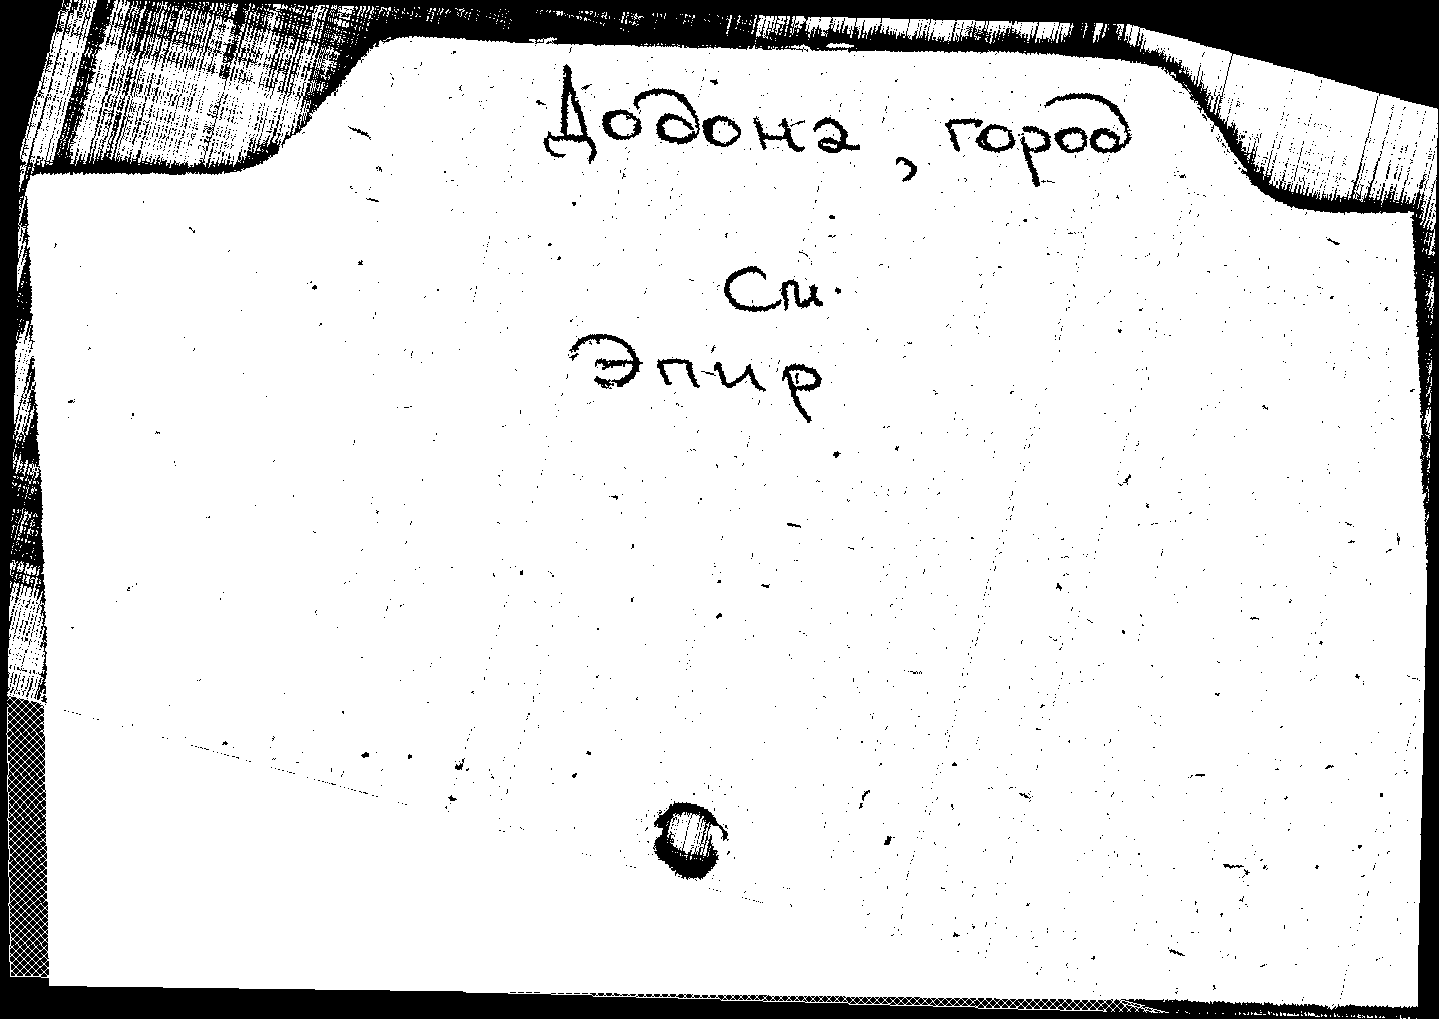 Додона, город
См.
Эпир